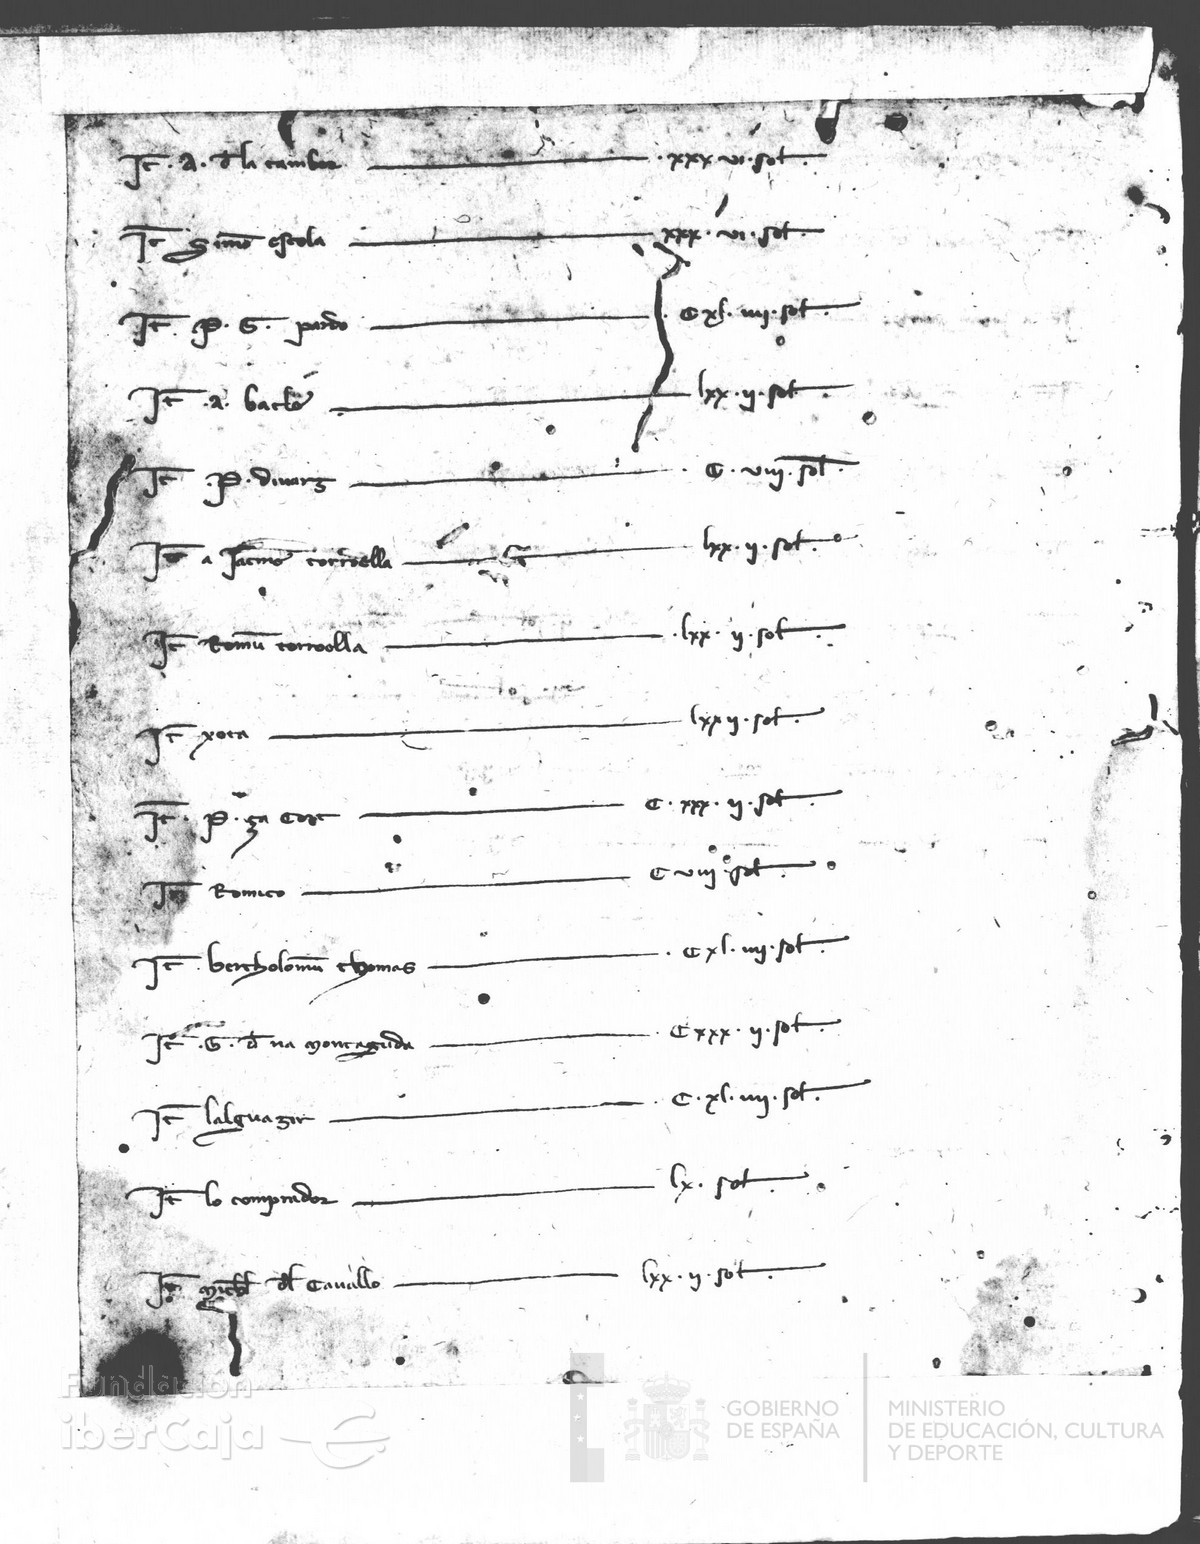 It. A. d la cambra xxx vi sol.
It Simo escola xxx. vi. sol.
It. P. G. pardo C xl. iiij. sol.
It .A. bacler lxx. ij. sol.
It .P. divarz C. viij. sol.
It a Jacme torroella lxx. ij. sol.
It Romu torroella lxx. ij. sol.
It xota lxx ij. sol.
It. P. ça Cort C. xxx. ij. sol.
It Romico C viij sol.
It bertholomu thomas C xl. iiij. sol.
It .G. d na montaguda C xxx. ij. sol.
It lalguazir C. xl. iiij. sol.
It lo comprador lx. sol.
It dl Cavallo lxx. ij. sol.
Fundación
iberCaja
GOBIERNO
DE ESPAÑA
MINISTERIO
DE EDUCACIÓN, CULTURA
Y DEPORTE